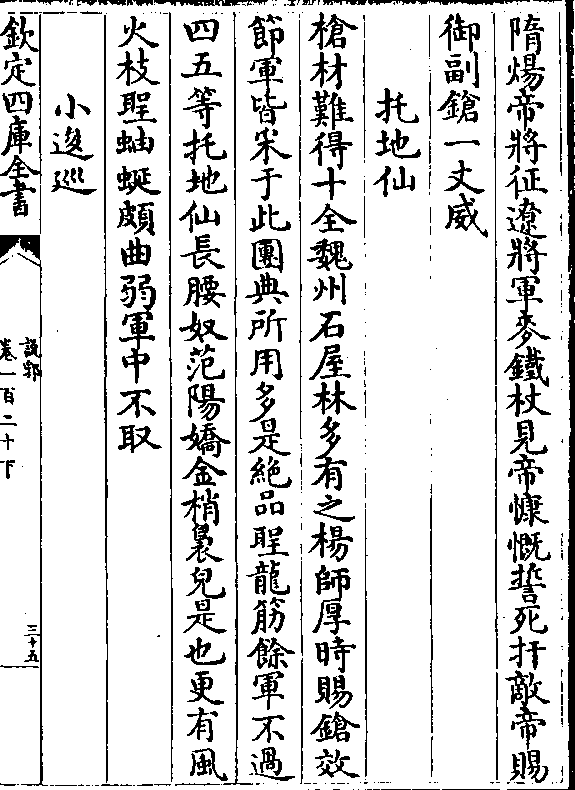 隋煬帝將征遼將軍麥鐵杖見帝慷慨誓死扞敵帝賜
御副鎗一丈威
托地仙
槍材難得十全魏州石屋林多有之楊師厚時賜鎗效
節軍皆采于此團典所用多是絶品聖龍筋餘軍不過
四五等托地仙長腰奴范陽嬌金梢褭兒是也更有風
火枝聖蚰蜒頗曲弱軍中不取
小逡巡
欽定四庫全書
說郛
卷一百二十下
三十五